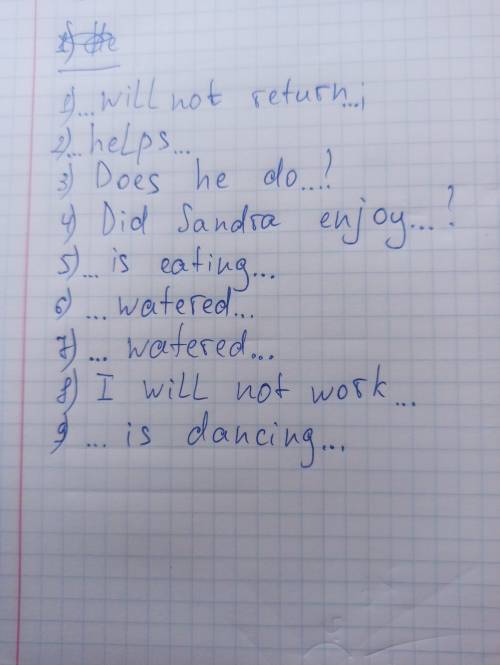 1) He
1)...will not return...;
2)...helps...
3) Does he do...?
4) Did Sandra enjoy...?
5)... is eating...
6) ... watered...
7) ... watered...
8) I will not work...
9 ... is dancing...